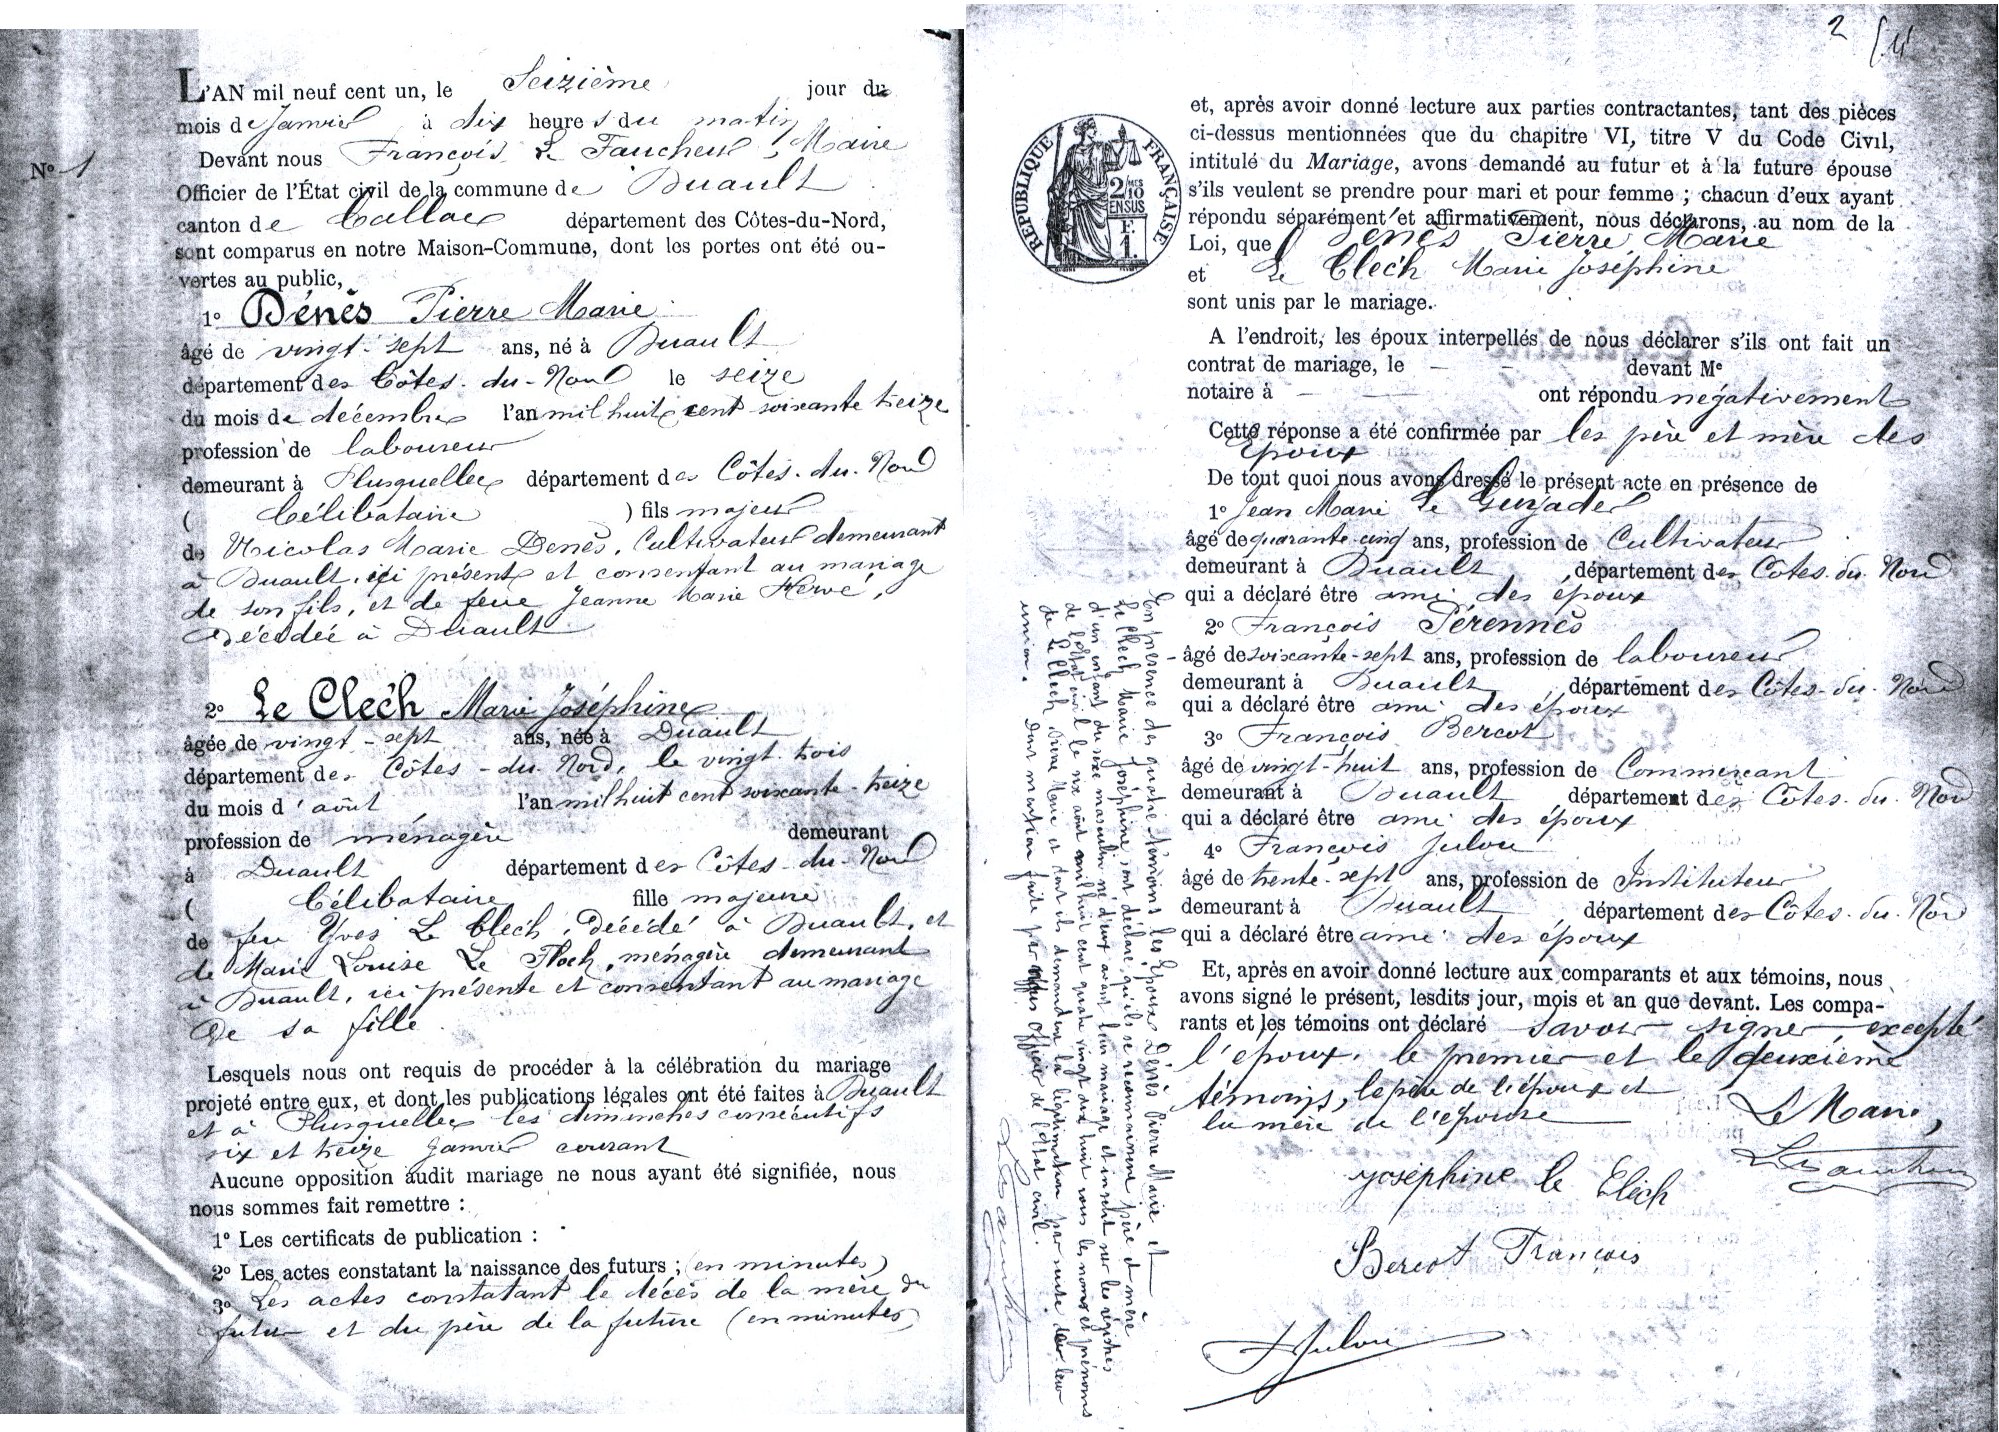 L'AN mil neuf cent un, le Seizième jour du
mois de Janvier à dix heures du matin
Devant nous François Le Faucheur, Maire
N° 1
Officier de l'État civil de la commune de Duault
canton de Callac département des Côtes-du-Nord,
sont comparus en notre Maison-Commune, dont les portes ont été ou-
vertes au public,
1° Dénès Pierre Marie
âgé de vingt-sept ans, né à Duault
département des Côtes-du-Nord le seize
du mois de décembre l'an mil huit cent soixante treize
profession de laboureur
demeurant à Plusquellec département des Côtes-du-Nord
( Célibataire ) fils majeur
de Nicolas Marie Denès, Cultivateur demeurant
à Duault, ici présent et consentant au mariage
de son fils, et de feue Jeanne Marie Hervé,
Décédée à Duault
2° Le Clech Marie Joséphine
âgée de vingt-sept ans, née à Duault
département des Côtes-du-Nord, le vingt trois
du mois d'août l'an mil huit cent soixante-treize
profession de ménagère demeurant
à Duault département des Côtes-du-Nord
( Célibataire fille majeure
de feu Yves Le Clech, Décédé à Duault, et
de Marie Louise Le Floch, ménagère demeurant
à Duault, ici présente et consentant au mariage
De sa fille
Lesquels nous ont requis de procéder à la célébration du mariage
projeté entre eux, et dont les publications légales ont été faites à Duault
et à Plusquellec les dimanches consécutifs
six et treize Janvier courant
Aucune opposition audit mariage ne nous ayant été signifiée, nous
nous sommes fait remettre :
1° Les certificats de publication :
2° Les actes constatant la naissance des futurs ; (en minutes)
3° Les actes constatant le décès de la mère du
futur et du père de la future (en minutes)
2
RÉPUBLIQUE FRANÇAISE
2/10 MES
EN SUS
1 F.
et, après avoir donné lecture aux parties contractantes, tant des pièces
ci-dessus mentionnées que du chapitre VI, titre V du Code Civil,
intitulé du Mariage, avons demandé au futur et à la future épouse
s'ils veulent se prendre pour mari et pour femme ; chacun d'eux ayant
répondu séparément et affirmativement, nous déclarons, au nom de la
Loi, que Denès Pierre Marie
et Le Clech Marie Joséphine
sont unis par le mariage.
A l'endroit, les époux interpellés de nous déclarer s'ils ont fait un
contrat de mariage, le - - devant Me
notaire à - - ont répondu négativement
Cette réponse a été confirmée par les père et mère des
Epoux
De tout quoi nous avons dressé le présent acte en présence de
1° Jean Marie Le Guyader
âgé de quarante-cinq ans, profession de Cultivateur
demeurant à Duault, département des Côtes-du-Nord
qui a déclaré être ami des époux
2° François Pérennès
âgé de soixante-sept ans, profession de laboureur
demeurant à Duault, département des Côtes-du-Nord
qui a déclaré être ami des époux
3° François Bercot
âgé de vingt-huit ans, profession de Commerçant
demeurant à Duault département des Côtes-du-Nord
qui a déclaré être ami des époux
4° François Julou
âgé de trente-sept ans, profession de Instituteur
demeurant à Duault département des Côtes-du-Nord
qui a déclaré être ami des époux
Et, après en avoir donné lecture aux comparants et aux témoins, nous
avons signé le présent, lesdits jour, mois et an que devant. Les compa-
rants et les témoins ont déclaré savoir signer, excepté
l'époux, le premier et le deuxième
témoins, le père de l'époux et
la mère de l'épouse
Le Maire,
Joséphine le Clech
Bercot François
Julou
En présence des quatre témoins les Epoux Dénès Pierre Marie et
Le Clech Marie Joséphine ont déclaré qu'ils se reconnaissent père et mère
d'un enfant du sexe masculin né d'eux avant leur mariage et inscrit sur les registres
de l'Etat civil le six août mil huit cent quatre vingt dix huit sous les noms et prénoms
de Le Clech Pierre Marie et dont ils demandent la légitimation par suite de leur
union. Dont mention faite par nous Officier de l'Etat civil.